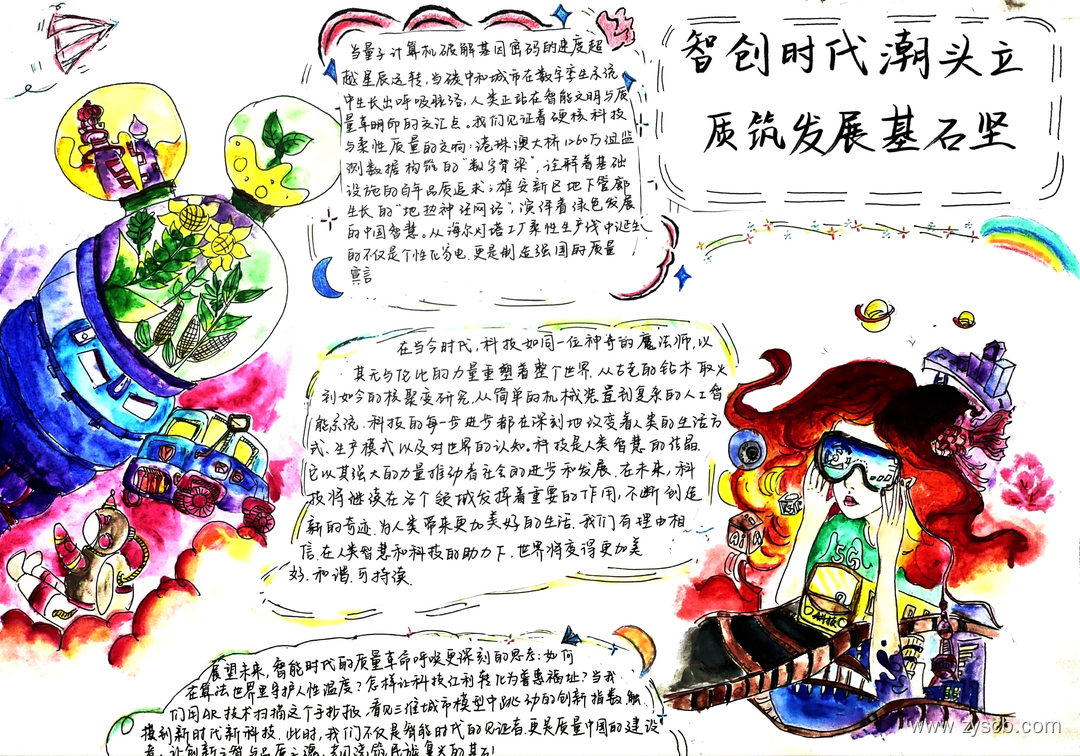 智创时代潮头立
质筑发展基石坚
当量子计算机破解基因密码的速度超
越星辰运转,当碳中和城市在数字孪生系统
中生长出呼吸脉络,人类正站在智能文明与质
量革命的交汇点。我们见证着硬核科技
与柔性质量的交响:港珠澳大桥1260万组监
测数据构筑的"数字脊梁",诠释着基础
设施的百年品质追求;雄安新区地下管廊
生长的"地热神经网络",演绎着绿色发展
的中国智慧。从海尔灯塔工厂柔性生产线中诞生
的不仅是个性化家电,更是制造强国的质量
宣言
在当今时代,科技如同一位神奇的魔法师,以
其无与伦比的力量重塑着整个世界,从古老的钻木取火
到如今的核聚变研究,从简单的机械装置到复杂的人工智
能系统,科技的每一步进步都在深刻地改变着人类的生活方
式、生产模式以及对世界的认知。科技是人类智慧的结晶,
它以其强大的力量推动着社会的进步和发展,在未来,科
技将继续在各个领域发挥着重要的作用,不断创造
新的奇迹,为人类带来更加美好的生活,我们有理由相
信,在人类智慧和科技的助力下,世界将变得更加美
好、和谐、可持续
展望未来,智能时代的质量革命呼唤更深刻的思考:如何
在算法世界里守护人性温度?怎样让科技红利转化为普惠福祉?当我
们用AR技术扫描这个手抄报,看见三维城市模型中跳动的创新指数,触
摸到新时代新科技,此时,我们不仅是智能时代的见证者,更是质量中国的建设
者,让创新之智与品质之源,共同浇筑民族复兴的基石
5G
AI
科技
www.zyscb.com